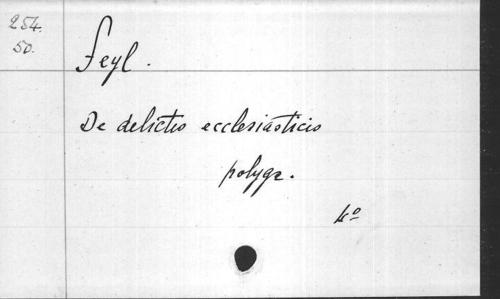 254.
50.
Feyl.
De delictis ecclesiasticis
polygr.
4º